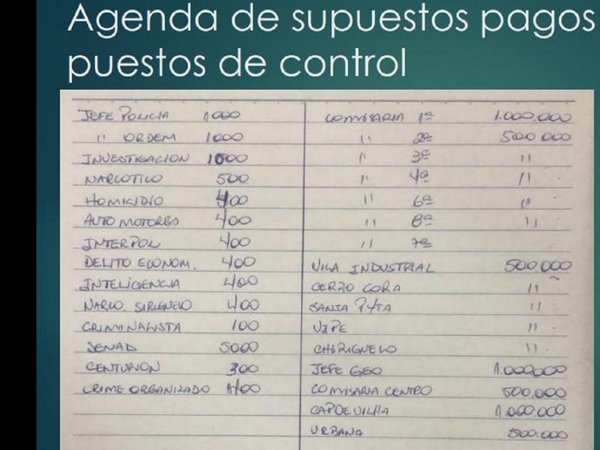 Agenda de supuestos pagos
puestos de control
JEFE POLICIA 1000
" ORDEM 1000
INVESTIGACION 1000
NARCOTICO 500
HOMICIDIO 400
AUTO MOTORES 400
INTERPOL 400
DELITO ECONOM. 400
INTELIGENCIA 400
NARCO. 400
CRIMINALISTA 100
SENAD 5000
CENTURION 300
CRIME ORGANIZADO
COMISARIA 1ª 1.000.000
" 2ª 500.000
" 3ª "
" 4ª "
" 6ª "
" 8ª "
" 7ª
VILA INDUSTRIAL 500.000
CERRO CORA "
SANJA PYTA "
"
CHIRIGUELO "
JEFE GEO 1.000.000
COMISARIA CENTRO 500.000
CAPDEVILHA 1.000.000
URBANA 500.000